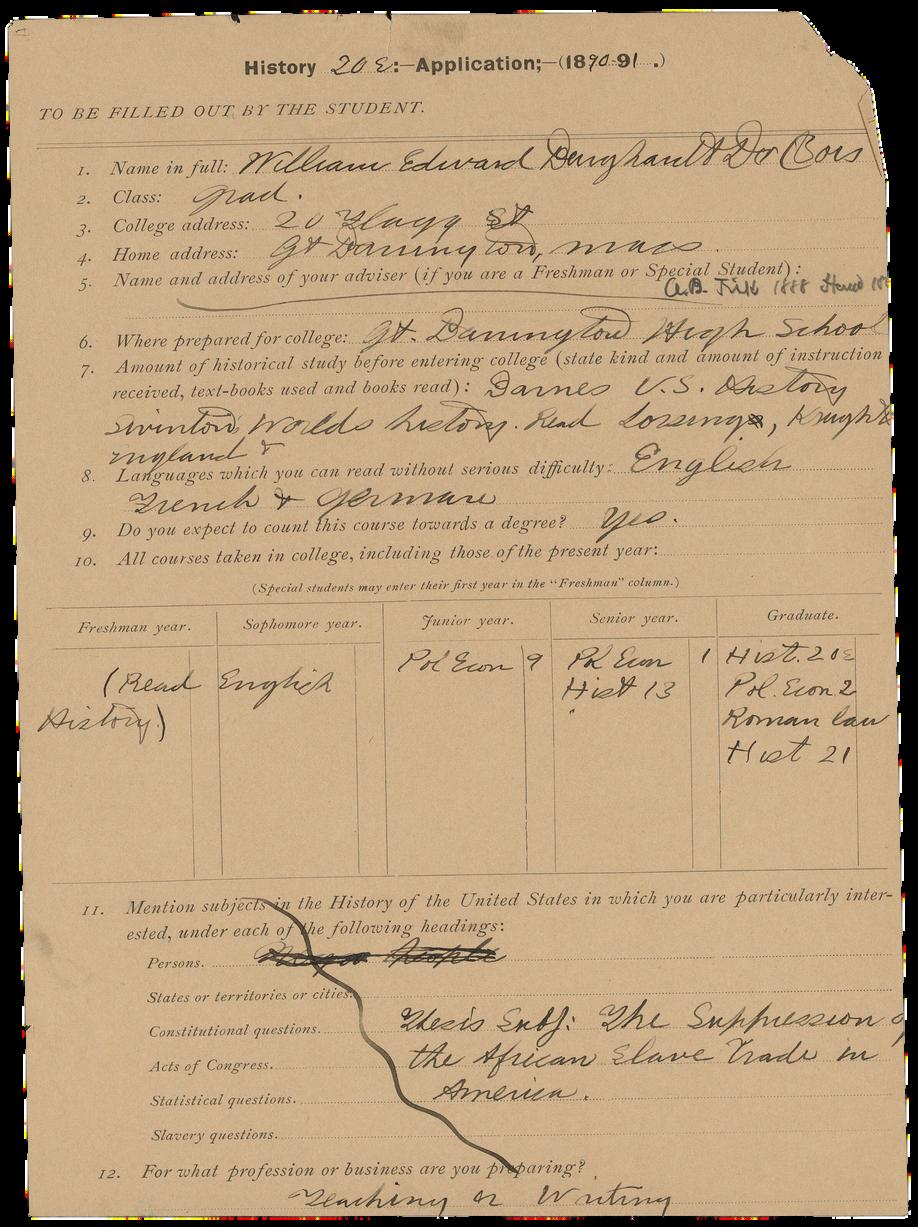 History 20e:—Application;—(1890-91.)
TO BE FILLED OUT BY THE STUDENT.
1. Name in full: William Edward Burghardt Du Bois
2. Class: Grad.
3. College address: 20 Flagg St
4. Home address: Gt Barrington, Mass.
5. Name and address of your adviser (if you are a Freshman or Special Student):
A.B. Fisk 1888 Harvard
6. Where prepared for college: Gt. Barrington High School
7. Amount of historical study before entering college (state kind and amount of instruction
received, text-books used and books read): Barnes U.S. History
Swinton's Worlds history. Read Lossing, Knight's
England &
8. Languages which you can read without serious difficulty: English
French & German
9. Do you expect to count this course towards a degree? Yes.
10. All courses taken in college, including those of the present year:
(Special students may enter their first year in the "Freshman" column.)
Freshman year. Sophomore year. Junior year. Senior year. Graduate.
(Read English Pol Econ 9 Pol Econ 1 Hist. 20e
History) Hist 13 Pol. Econ 2
Roman law
Hist 21
11. Mention subjects in the History of the United States in which you are particularly inter-
ested, under each of the following headings:
Persons. Negro People
States or territories or cities.
Constitutional questions. Thesis Subj: The Suppression of
Acts of Congress. the African Slave Trade in
Statistical questions. America.
Slavery questions.
12. For what profession or business are you preparing?
Teaching or Writing